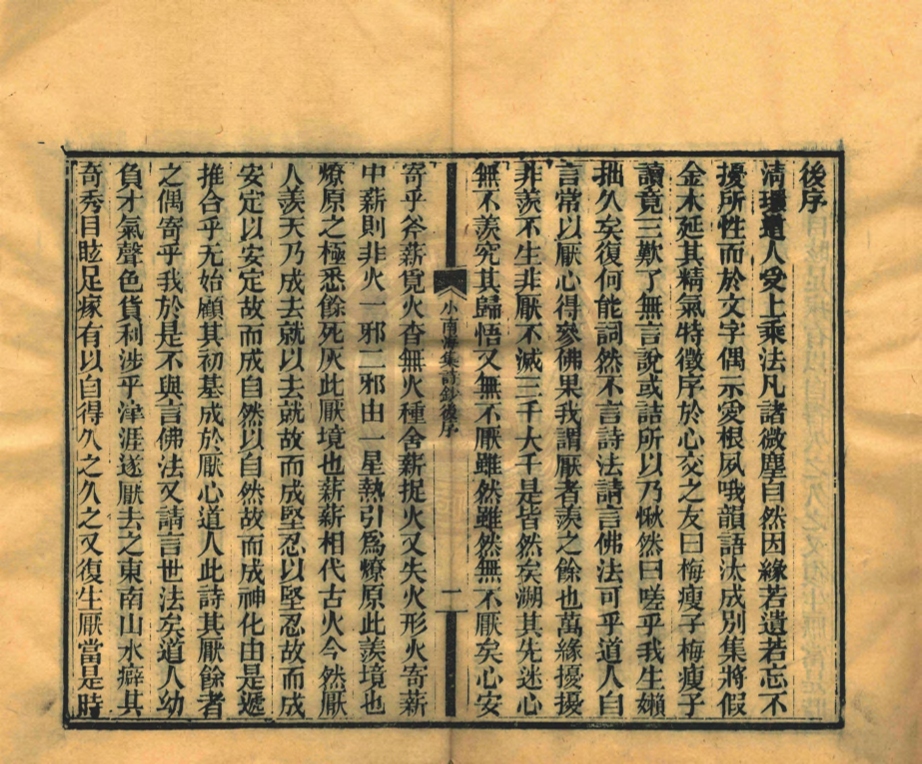 後序
清環道人受上乘法凡諸微塵自然因緣若遺若忘不
擾所性而於文字偶示愛根夙哦韻語汰成別集將假
金木延其精氣特徵序於心交之友曰梅瘦子梅瘦子
讀竟三歎了無言說或詰所以乃愀然曰嗟乎我生嬾
拙久矣復何能詞然不言詩法請言佛法可乎道人自
言常以厭心得參佛果我謂厭者羨之餘也萬緣擾擾
非羨不生非厭不滅三千大千是皆然矣溯其先迷心
無不羨究其歸悟又無不厭雖然雖然無不厭矣心安
小南海集詩鈔後序
一
寄乎斧薪覓火杳無火種舍薪捉火又失火形火寄薪
中薪則非火一邪二邪由一星熱引爲燎原此羨境也
燎原之極悉餘死灰此厭境也薪薪相代古火今然厭
人羨天乃成去就以去就故而成堅忍以堅忍故而成
安定以安定故而成自然以自然故而成神化由是遞
推合乎无始顧其初基成於厭心道人此詩其厭餘者
之偶寄乎我於是不與言佛法又請言世法矣道人幼
負才氣聲色貨利涉乎津涯遂厭去之東南山水癖其
奇秀目眩足瘃有以自得久之久之又復生厭當是時